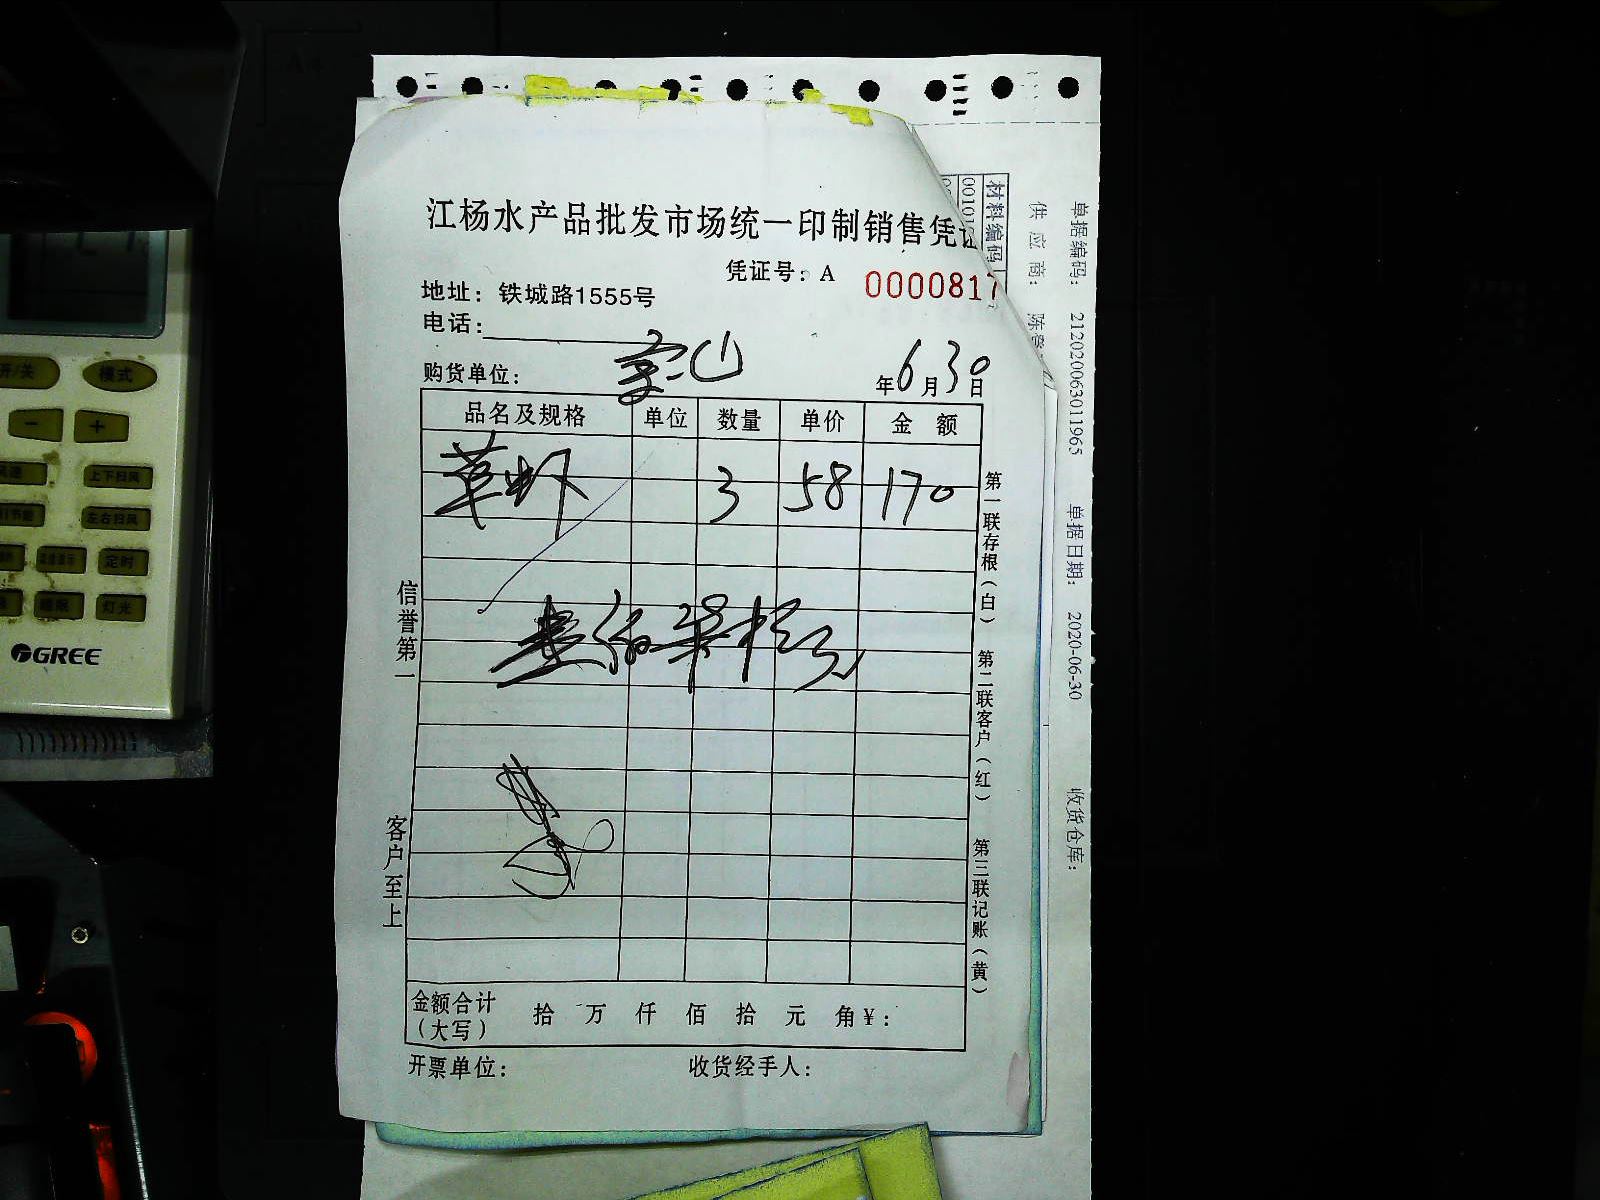 江杨水产品批发市场统一印制销售凭证
凭证号：A 0000817
地址：铁城路1555号
电话：
购货单位：
年6月30日
品名及规格 单位 数量 单价 金额
草虾 3 58 170
金额合计（大写） 拾 万 仟 佰 拾 元 角￥：
开票单位： 收货经手人：
信誉第一
客户至上
第一联存根（白） 第二联客户（红） 第三联记账（黄）
材料编码
供应商：
单据编码： 2120200630011965 单据日期： 2020-06-30 收货仓库：
开/关 模式
- +
上下扫风
左右扫风
定时
睡眠 灯光
GREE